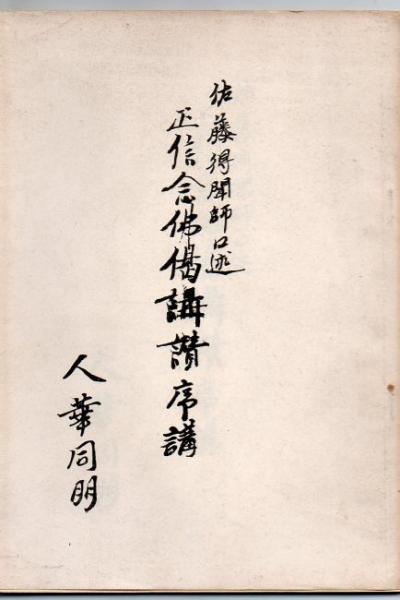 佐藤得聞師口述
正信念佛偈講讃序講
人華同明